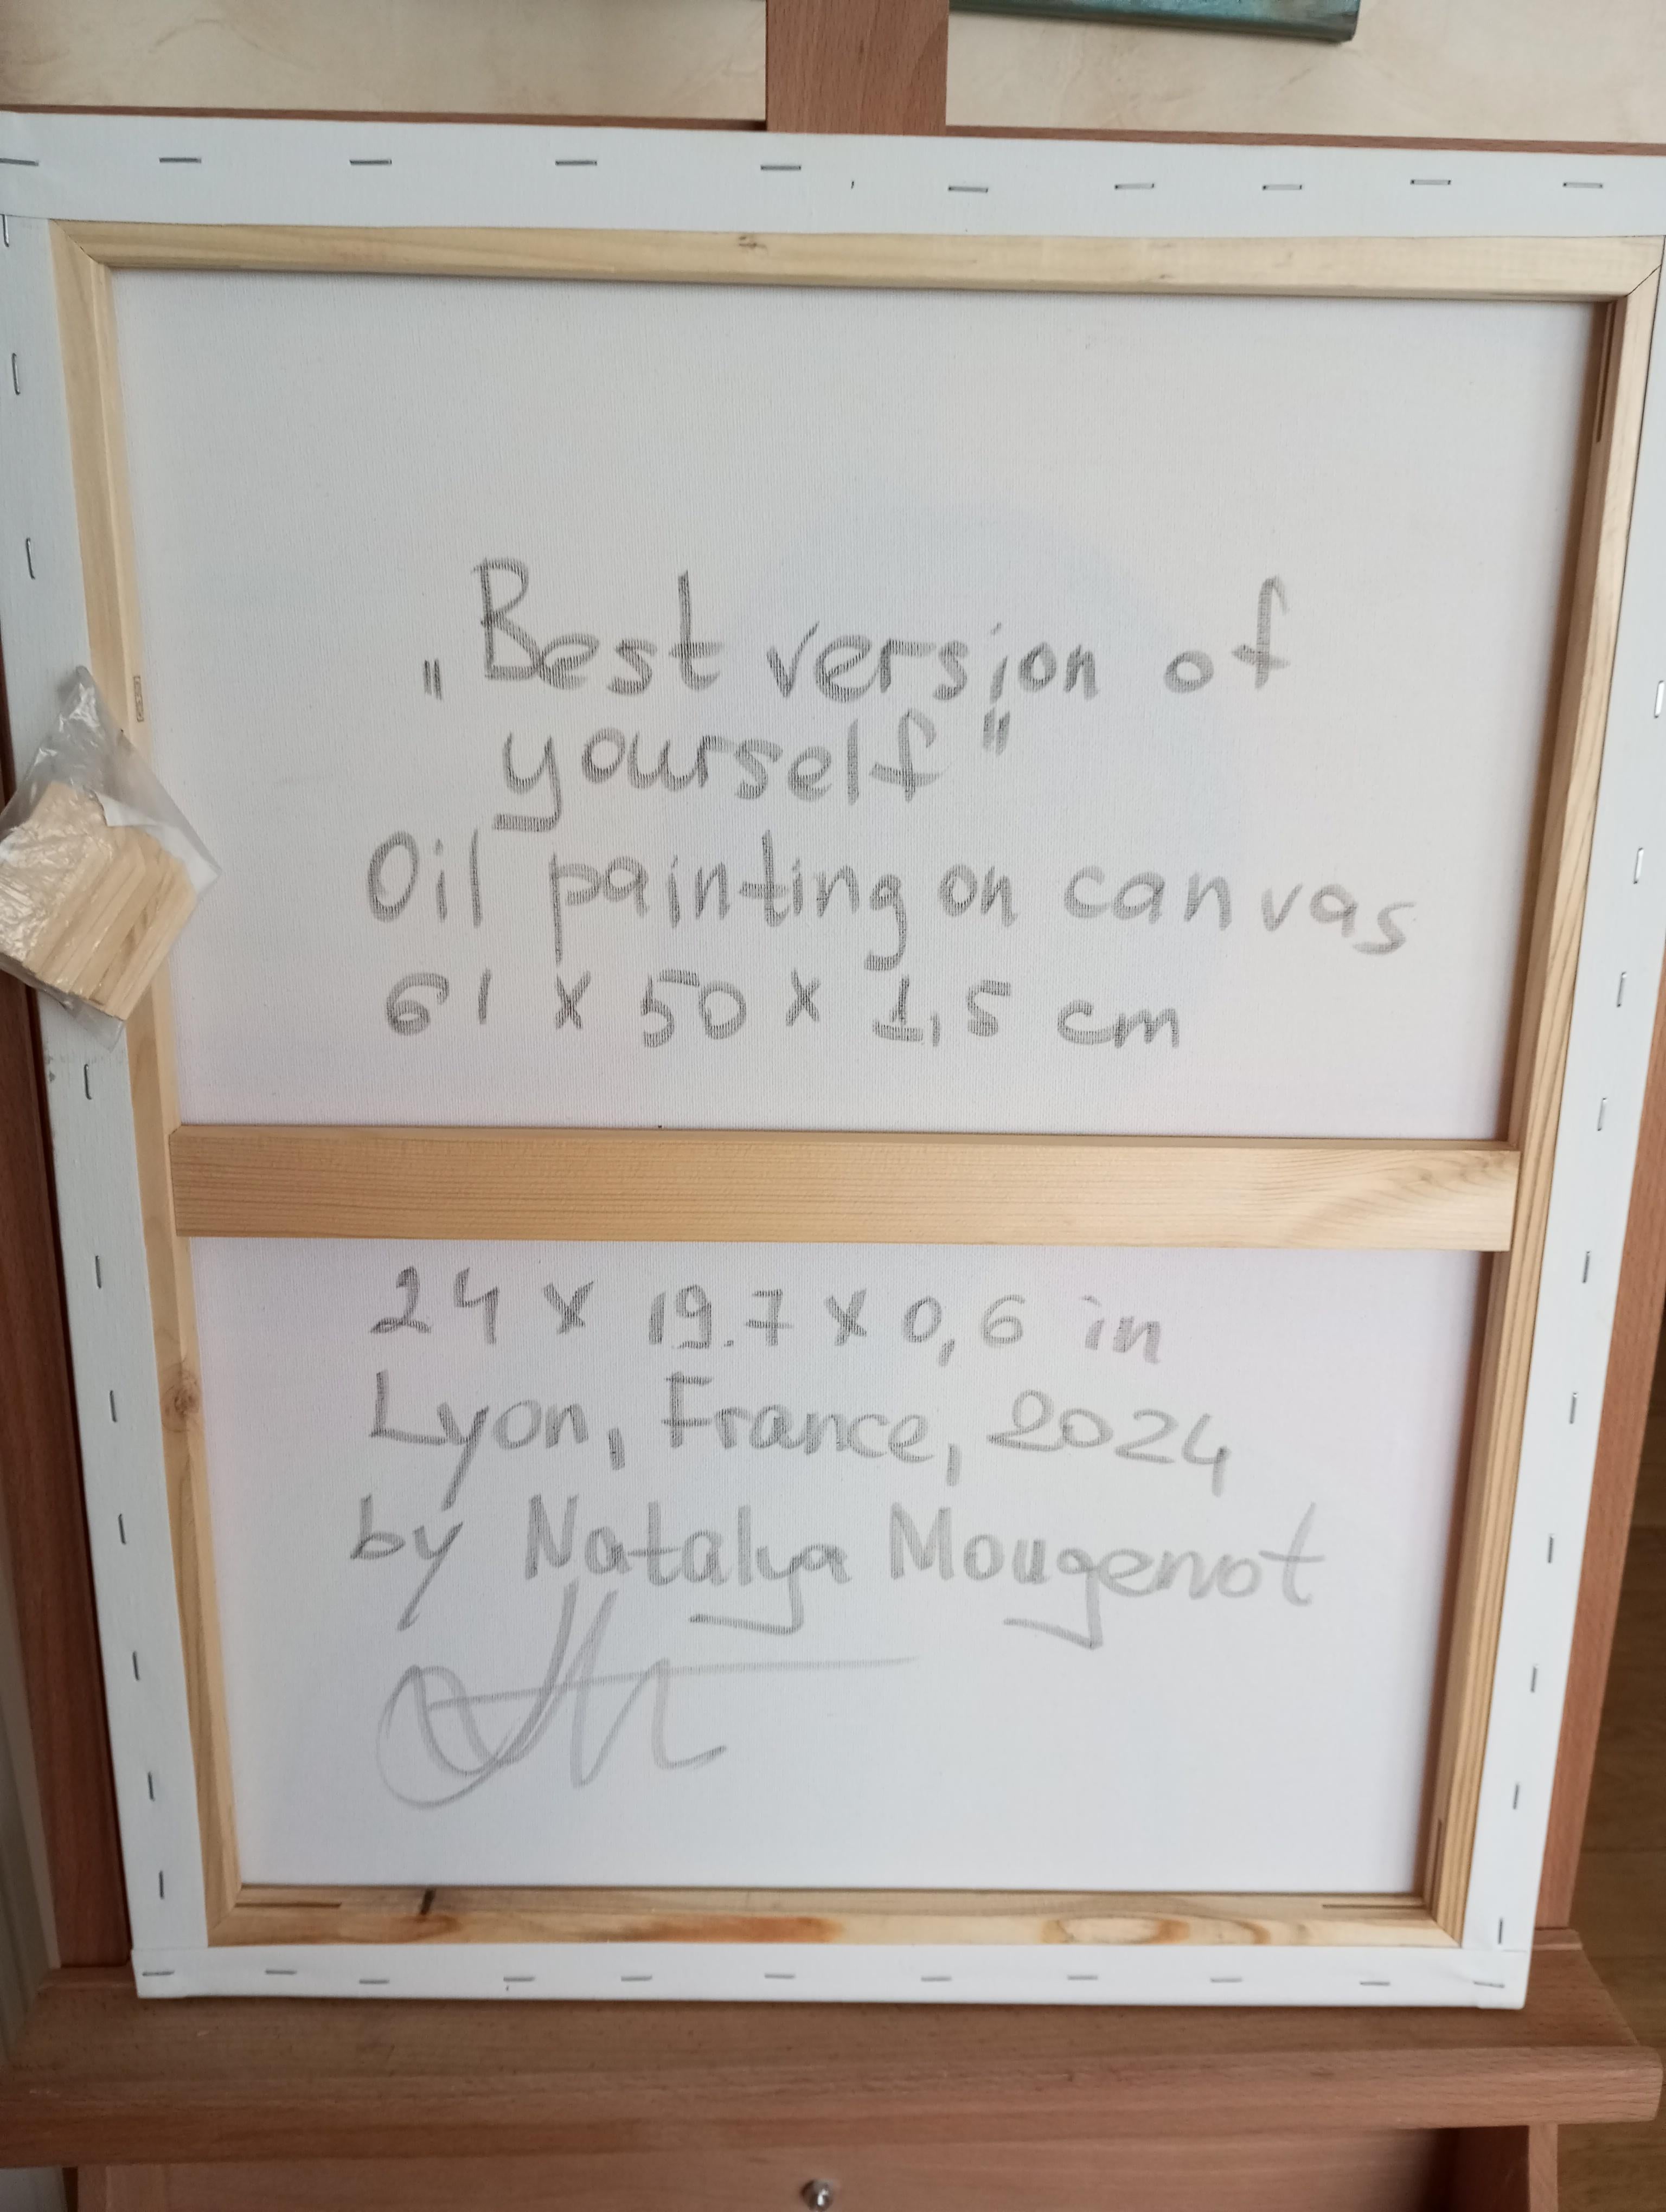 „Best version of
yourself"
Oil painting on canvas
61 x 50 x 1,5 cm
24 x 19.7 x 0,6 in
Lyon, France, 2024
by Natalya Mougenot